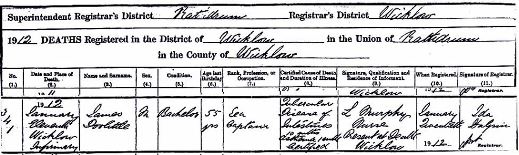 Superintendent Registrar's District Rathdrum Registrar's District Wicklow
1912 DEATHS Registered in the District of Wicklow in the Union of Rathdrum
in the County of Wicklow
No. (1.) Date and Place of Death. (2.) Name and Surname. (3.) Sex. (4.) Condition. (5.) Age last Birthday. (6.) Rank, Profession, or Occupation. (7.) Certified Cause of Death and Duration of Illness. (8.) Signature, Qualification and Residence of Informant. (9.) When Registered. (10.) Signature of Registrar. (11.)
Wicklow
341
1912
January
Wicklow
Infirmary
James
Doolittle
M
Bachelor
55
yrs
Sea
Captain
Tubercular
Disease of
Intestines
Certified
L Murphy
Nurse
Present at Death
Wicklow
January
Twentieth
1912.
Ida
Halpin